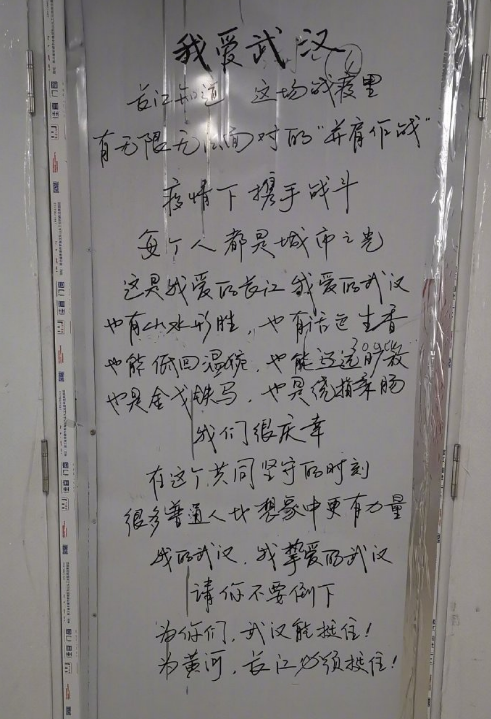 我爱武汉
长江知道 这场战疫里
有无限无 面对的"并肩作战"
疫情下携手战斗
每个人都是城市之光
这是我爱的长江 我爱的武汉
也有山水形胜,也有活色生香
也能低回温婉,也能
也是金戈铁马,也是绕指柔肠
我们很庆幸
在这个共同坚守的时刻
很多普通人比想象中更有力量
我的武汉,我挚爱的武汉
请你不要倒下
为你们,武汉能挺住!
为黄河,长江必须挺住!